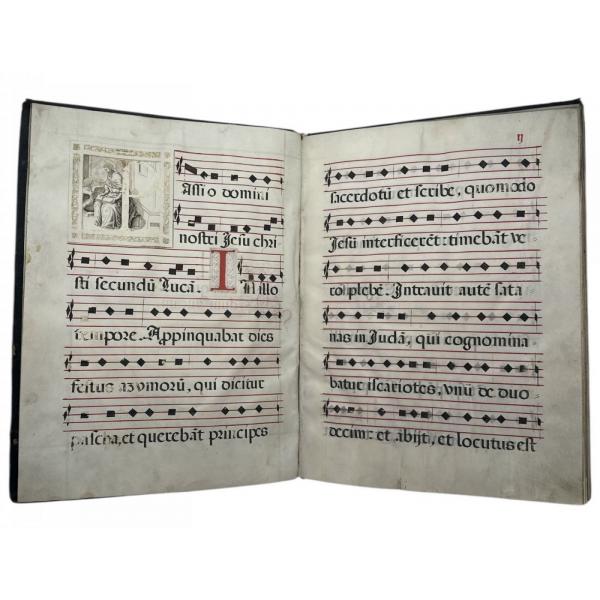 Assi o domini
nostri Jesu chri
sti secundũ Lucã. In illo
tempore. Appinquabat dies
festus azymorũ, qui dicitur
pascha, et querebãt principes
η
sacerdotũ et scribe, quomodo
Jesũ interficerẽt: timebãt ve
ro plebẽ. Intravit autẽ sata
nas in Judã, qui cognomina
batur iscariotes, unũ de duo
decim: et abijt, et locutus est